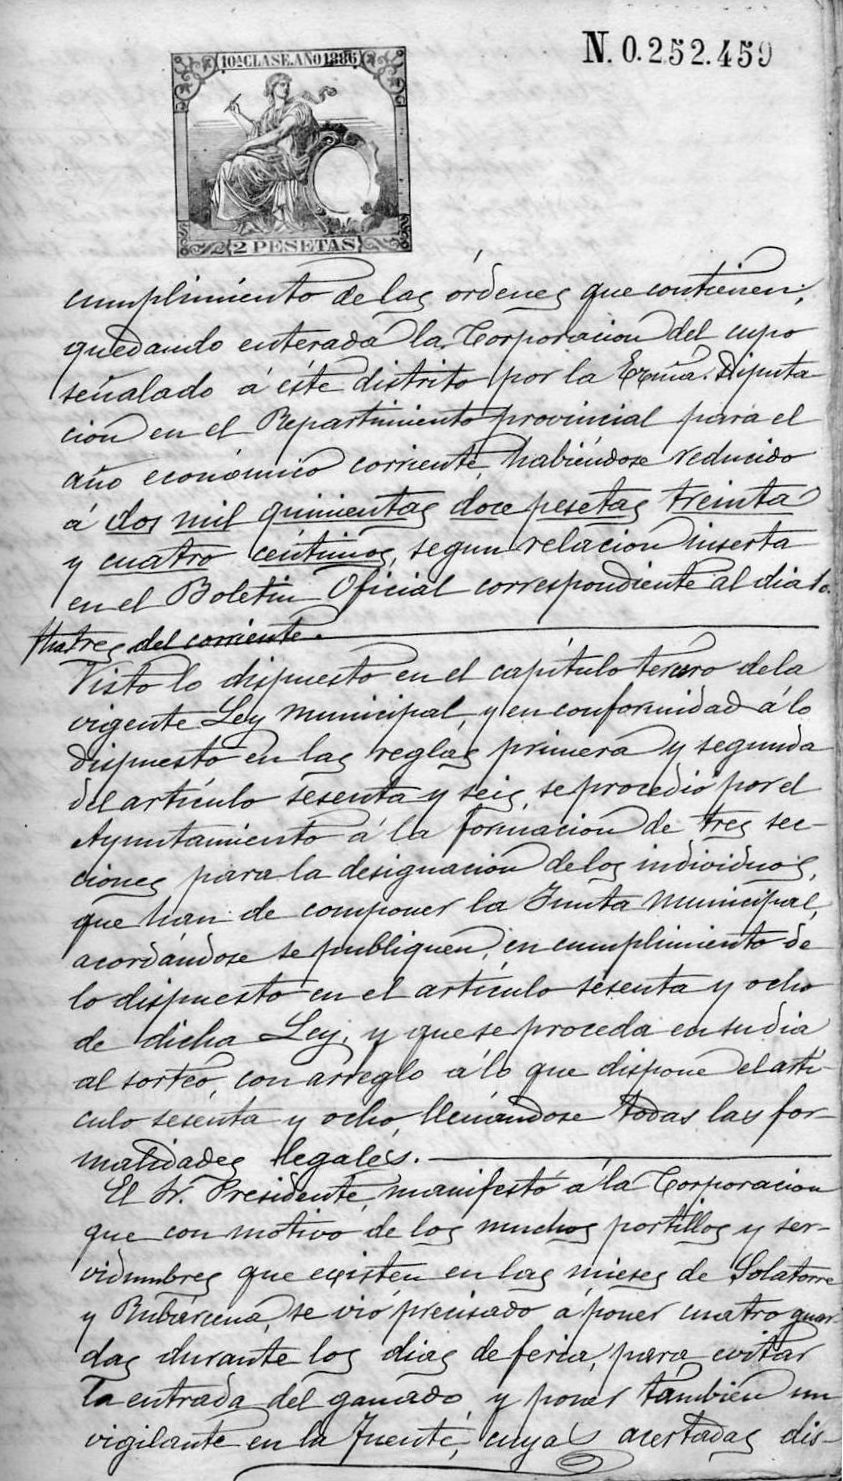 10ª CLASE. AÑO 1886
N. 0.252.459
2 PESETAS
cumplimiento de las órdenes que contienen;
quedando enterada la Corporacion del cupo
señalado á éste distrito por la Exma. Diputa
ción en el Repartimiento provincial para el
año económico corriente, habiéndose reducido
á dos mil quinientas doce pesetas treinta
y cuatro céntimos, segun relacion inserta
en el Boletin Oficial correspondiente al dia
tres del corriente.
Visto lo dispuesto en el capítulo tercero de la
vigente Ley Municipal, y en conformidad á lo
dispuesto en las reglas primera y segunda
del artículo sesenta y seis, se procedió por el
Ayuntamiento á la formacion de tres sec-
ciones para la designación de los individuos,
que han de componer la Junta Municipal,
acordándose se publiquen, en cumplimiento de
lo dispuesto en el artículo sesenta y ocho
de dicha Ley, y que se proceda en su dia
al sorteo, con arreglo á lo que dispone el artí-
culo sesenta y ocho, llenándose todas las for-
malidades legales.
El Sr. Presidente, manifestó á la Corporacion
que con motivo de los muchos portillos y ser-
vidumbres que existen en las mieses de Solatorre
y Bubárcena, se vió precisado á poner cuatro guar-
das durante los dias de feria, para evitar
la entrada del ganado, y poner también un
vigilante en la Fuente, cuyas acertadas dis-